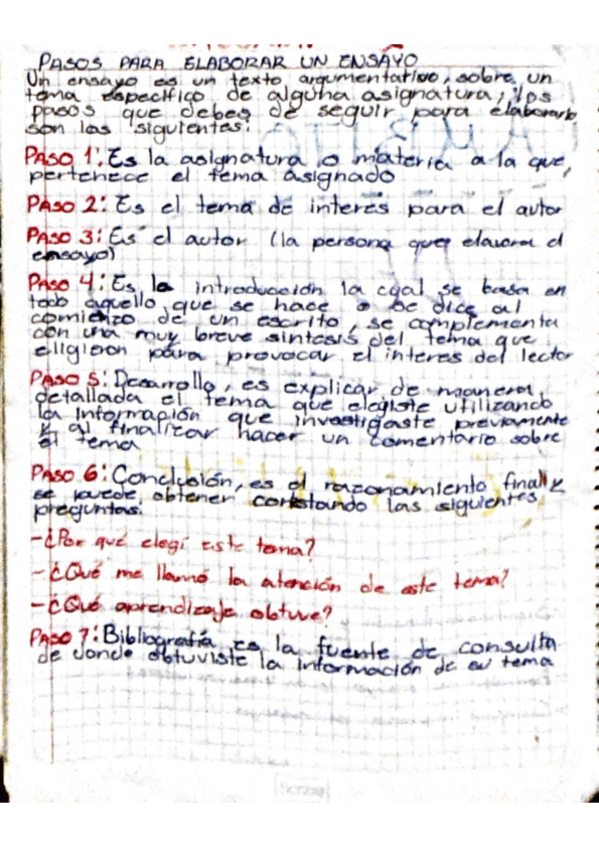 PASOS PARA ELABORAR UN ENSAYO
Un ensayo es un texto argumentativo, sobre un
tema específico de alguna asignatura, los
pasos que debes de seguir para elaborarlo
son los siguientes:
PASO 1: Es la asignatura o materia a la que,
pertenece el tema asignado
PASO 2: Es el tema de interes para el autor
PASO 3: Es el autor (la persona que elavora el
ensayo)
PASO 4: Es la introducción la cual se basa en
todo aquello que se hace o se dice al
comienzo de un escrito, se complementa
con una muy breve sintesis del tema que
eligieron para provocar el interes del lector
PASO 5: Desarrollo, es explicar de manera
detallada el tema que elegiste utilizando
la información que investigaste previamente
y al finalizar hacer un comentario sobre
el tema
PASO 6: Conclusión, es el razonamiento final y
se puede obtener contestando las siguientes
preguntas:
-¿Por qué elegí este tema?
-¿Qué me llamó la atención de este tema?
-¿Qué aprendizaje obtuve?
PASO 7: Bibliografía es la fuente de consulta
de donde obtuviste la información de su tema